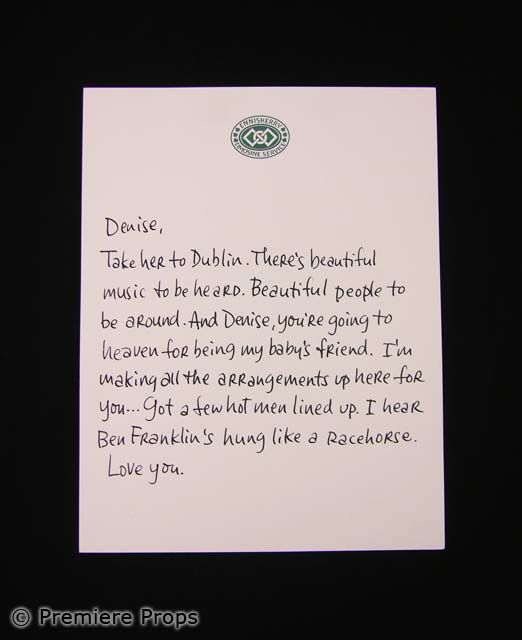 ENNISKERRY
LIMOSINE SERVICE
Denise,
Take her to Dublin. There's beautiful
music to be heard. Beautiful people to
be around. And Denise, you're going to
heaven for being my baby's friend. I'm
making all the arrangements up here for
you... Got a few hot men lined up. I hear
Ben Franklin's hung like a racehorse.
Love you.
© Premiere Props